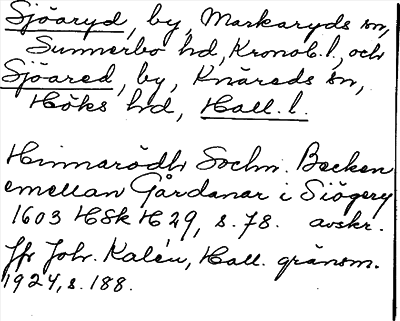 Sjöaryd, by, Markaryds sn,
Sunnerbo hd, Kronob. l., och
Sjöared, by, Knäreds sn,
Höks hd, Hall. l.
Hinnarödh Sochn. Becken
emellan Gårdanar i Siögery
1603 HSk H29, s. 78. avskr.
Jfr Joh. Kalén, Hall. gränsm.
1924, s. 188.